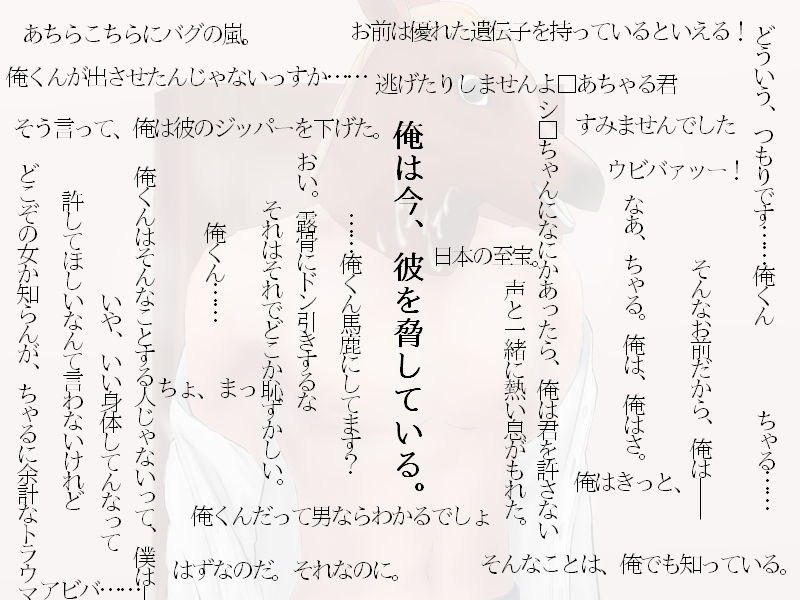 あちらこちらにバグの嵐。
お前は優れた遺伝子を持っているといえる！
俺くんが出させたんじゃないっすか……
逃げたりしませんよ□あちゃる君
そう言って、俺は彼のジッパーを下げた。
すみませんでした
ウビバァッー！
どういう、つもりです……俺くん
ちゃる……
そんなお前だから、俺は――
なあ、ちゃる。俺は、俺はさ。
シ□ちゃんになにかあったら、俺は君を許さない
声と一緒に熱い息がもれた。
日本の至宝。
俺は今、彼を脅している。
……俺くん馬鹿にしてます？
おい。露骨にドン引きするな
それはそれでどこか恥ずかしい。
俺くん……
ちょ、まっ
俺くんはそんなことする人じゃないって、僕は
いや、いい身体してんなって
許してほしいなんて言わないけれど
どこぞの女か知らんが、ちゃるに余計なトラウマ
俺はきっと、
俺くんだって男ならわかるでしょ
はずなのだ。それなのに。
そんなことは、俺でも知っている。
アビバ……